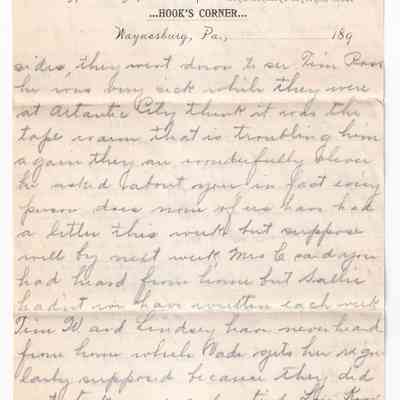 ...HOOK'S CORNER...
Waynesburg, Pa., 189
sides, they went down to see Tim Ross
he was very sick while they were
at Atlantic City think it was the
tape warm that is troubling him
again they are wonderfully clever
he asked about you in fact every
person does none of us have had
a letter this week but suppose
will by next week Mrs C said you
had heard from home but Sallie
hadn't we have written each week
Tim W and Lindsey have never heard
from home while Wade gets her regu
larly supposed because they did